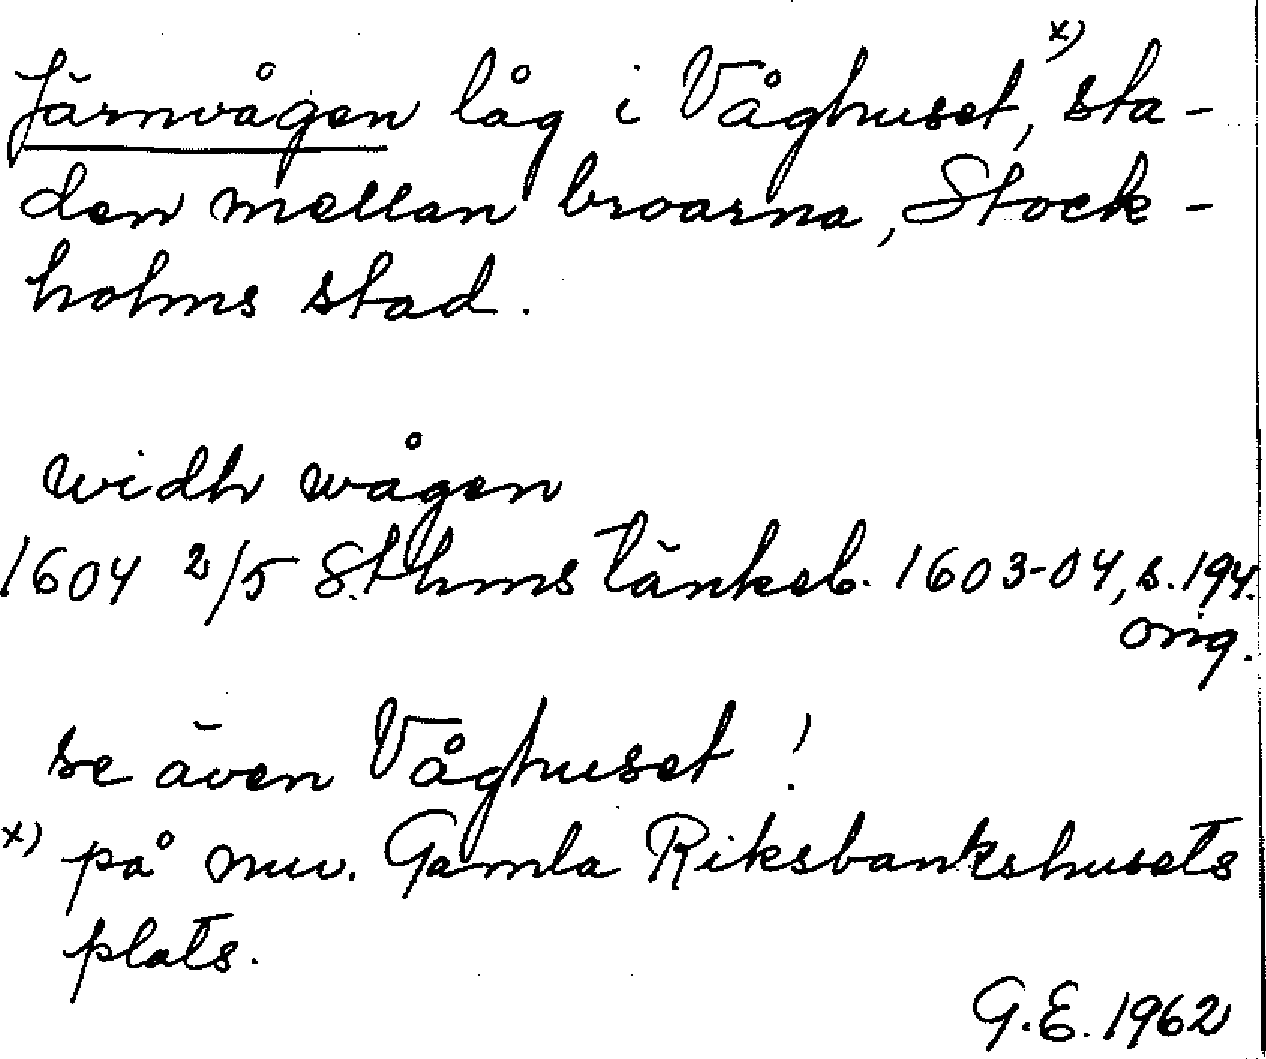 Järnvågen låg i Våghuset,x) sta-
den mellan broarna, Stock-
holms stad.
widh wågen
1604 2/5 Sthms tänkeb. 1603-04, s. 194.
orig.
se även Våghuset!
x) på nuv. Gamla Riksbankshusets
plats.
G.E. 1962